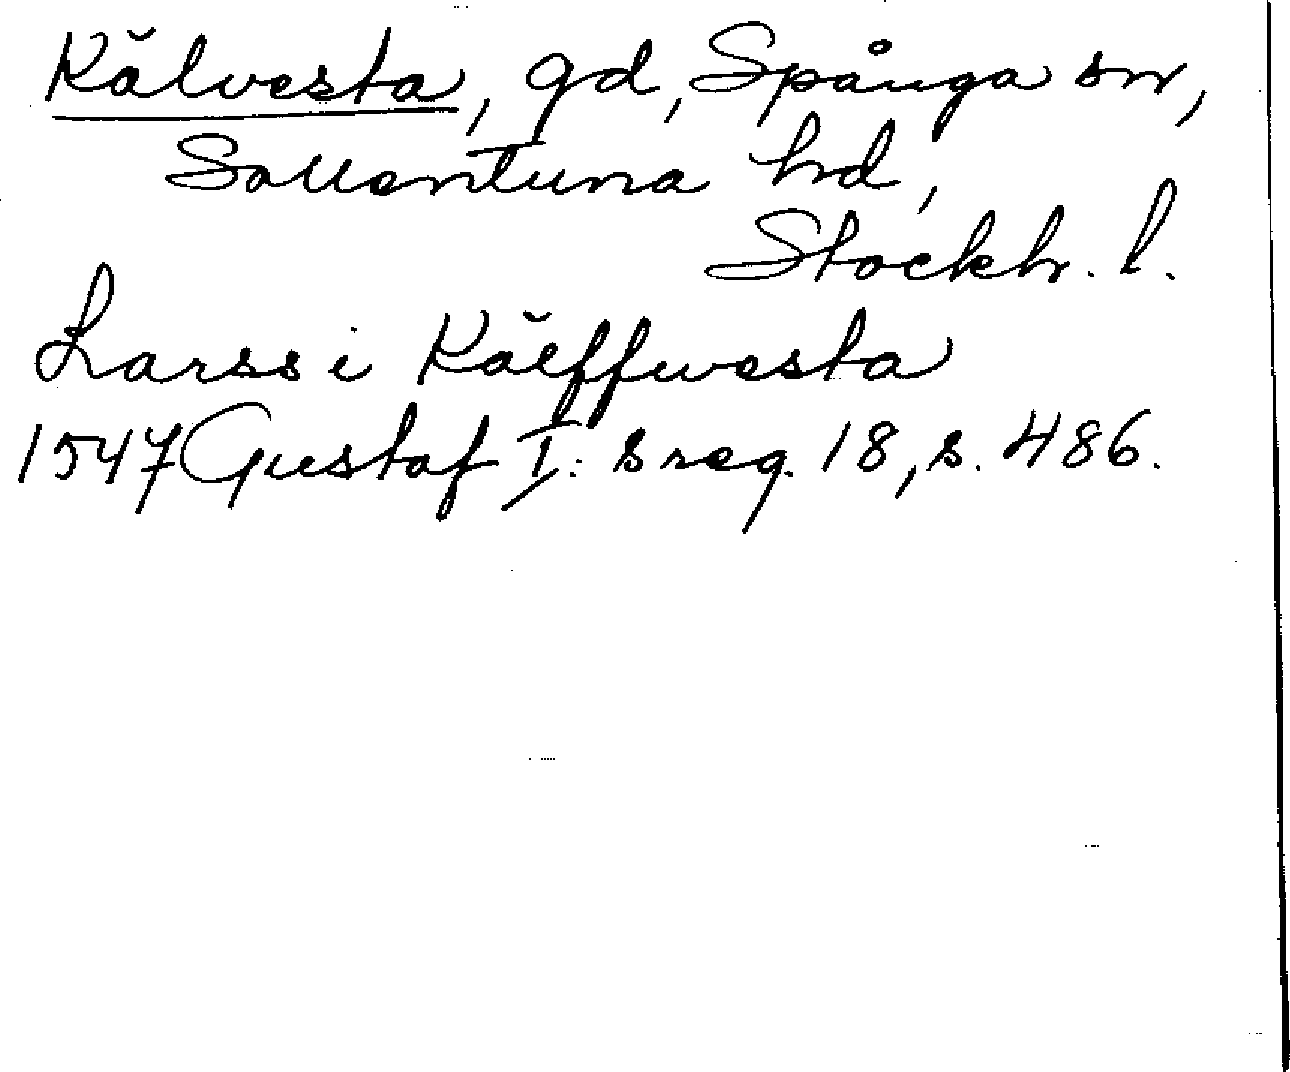 Kälvesta, gd, Spånga sn,
Sollentuna hd,
Stockh. l.
Larss i Kälffwesta
1547 Gustaf I:s reg. 18, s. 486.